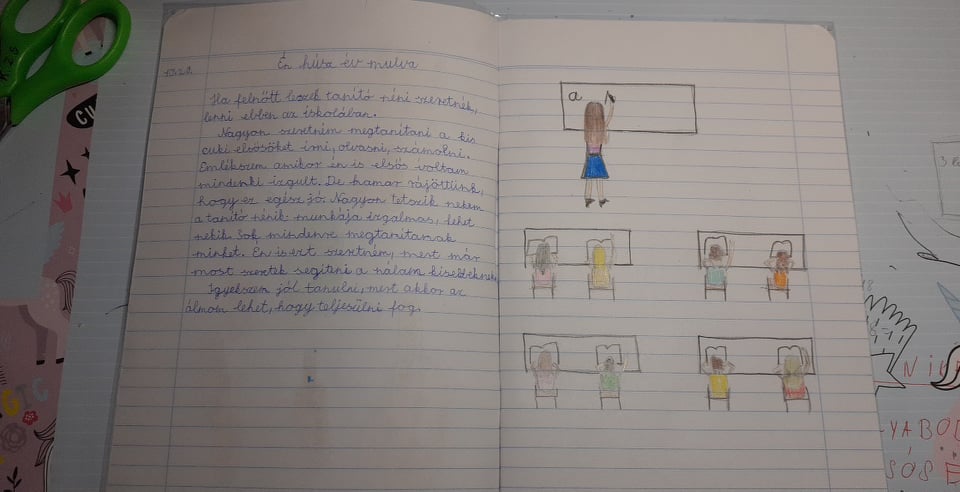 Én húsz év mulva
Ha felnőtt leszek tanító néni szeretnék,
lenni ebben az iskolában.
Nagyon szeretném megtanítani a kis
cuki elsősöket írni, olvasni, számolni.
Emlékszem amikor én is elsős voltam
mindenki izgult. De hamar rájöttünk,
hogy ez egész jó. Nagyon tetszik nekem
a tanító nénik munkája izgalmas, lehet
nekik. Sok mindenre megtanítanak
minket. Én is ezt szeretném, mert már
most szeretek segíteni a nálam kisebbeknek.
Igyekszem jól tanulni, mert akkor az
álmom lehet, hogy teljesülni fog.
a